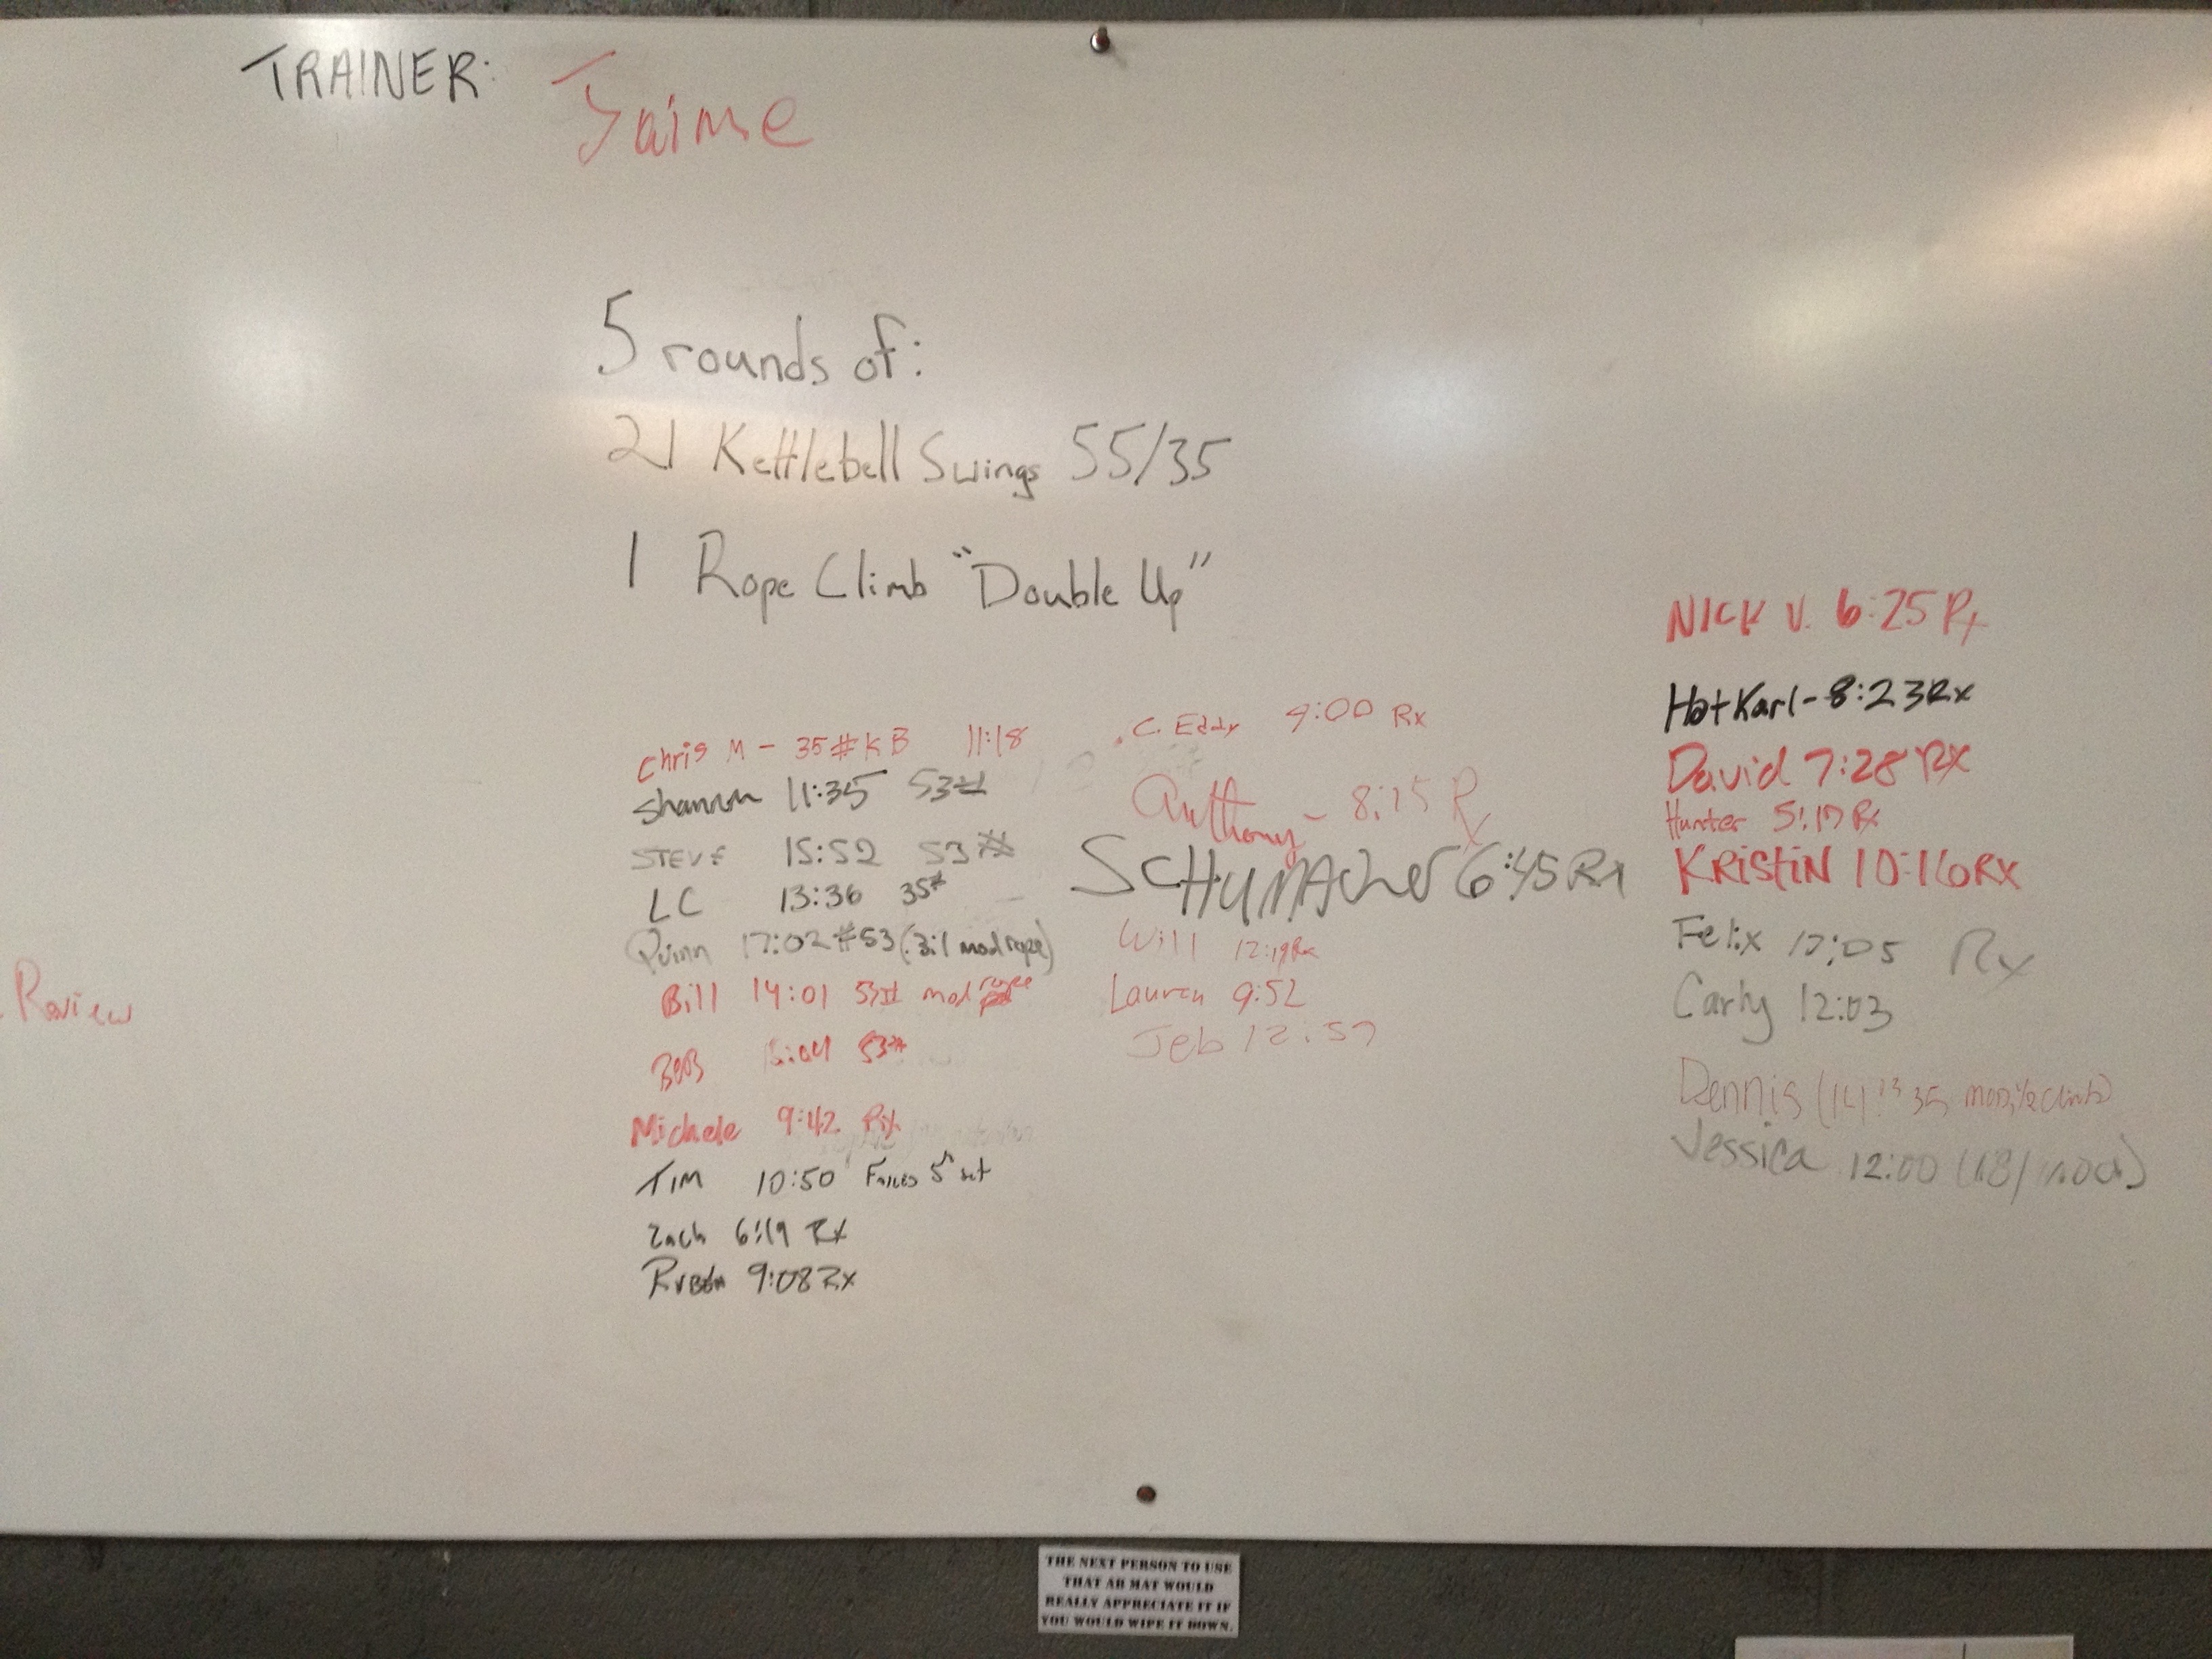 TRAINER: Jaime
5 rounds of:
21 Kettlebell Swings 55/35
1 Rope Climb "Double Up"
Chris M - 35# KB 11:18
Shannon 11:35 53#
STEVE 15:52 53#
LC 13:36 35#
Quinn 17:02 #53 (3:1 mod rope)
Bill 14:01 53# mod rope
BOB 53#
Michele 9:42 Rx
TIM 10:50 5 set
Zach 6:19 Rx
RUBEN 9:08 Rx
C. Eddy 9:00 Rx
Anthony - 8:15 Rx
SCHUMACHER 6:45 Rx
Will 12:19 Rx
Lauren 9:52
Jeb 12:57
NICK V. 6:25 Rx
Hot Karl - 8:23 Rx
David 7:28 Rx
Hunter 5:17 Rx
KRISTIN 10:16 RX
Felix Rx
Carly 12:03
Dennis 35
Jessica 12:00
Review
THE NEXT PERSON TO USE
THAT AB MAT WOULD
REALLY APPRECIATE IT IF
YOU WOULD WIPE IT DOWN.